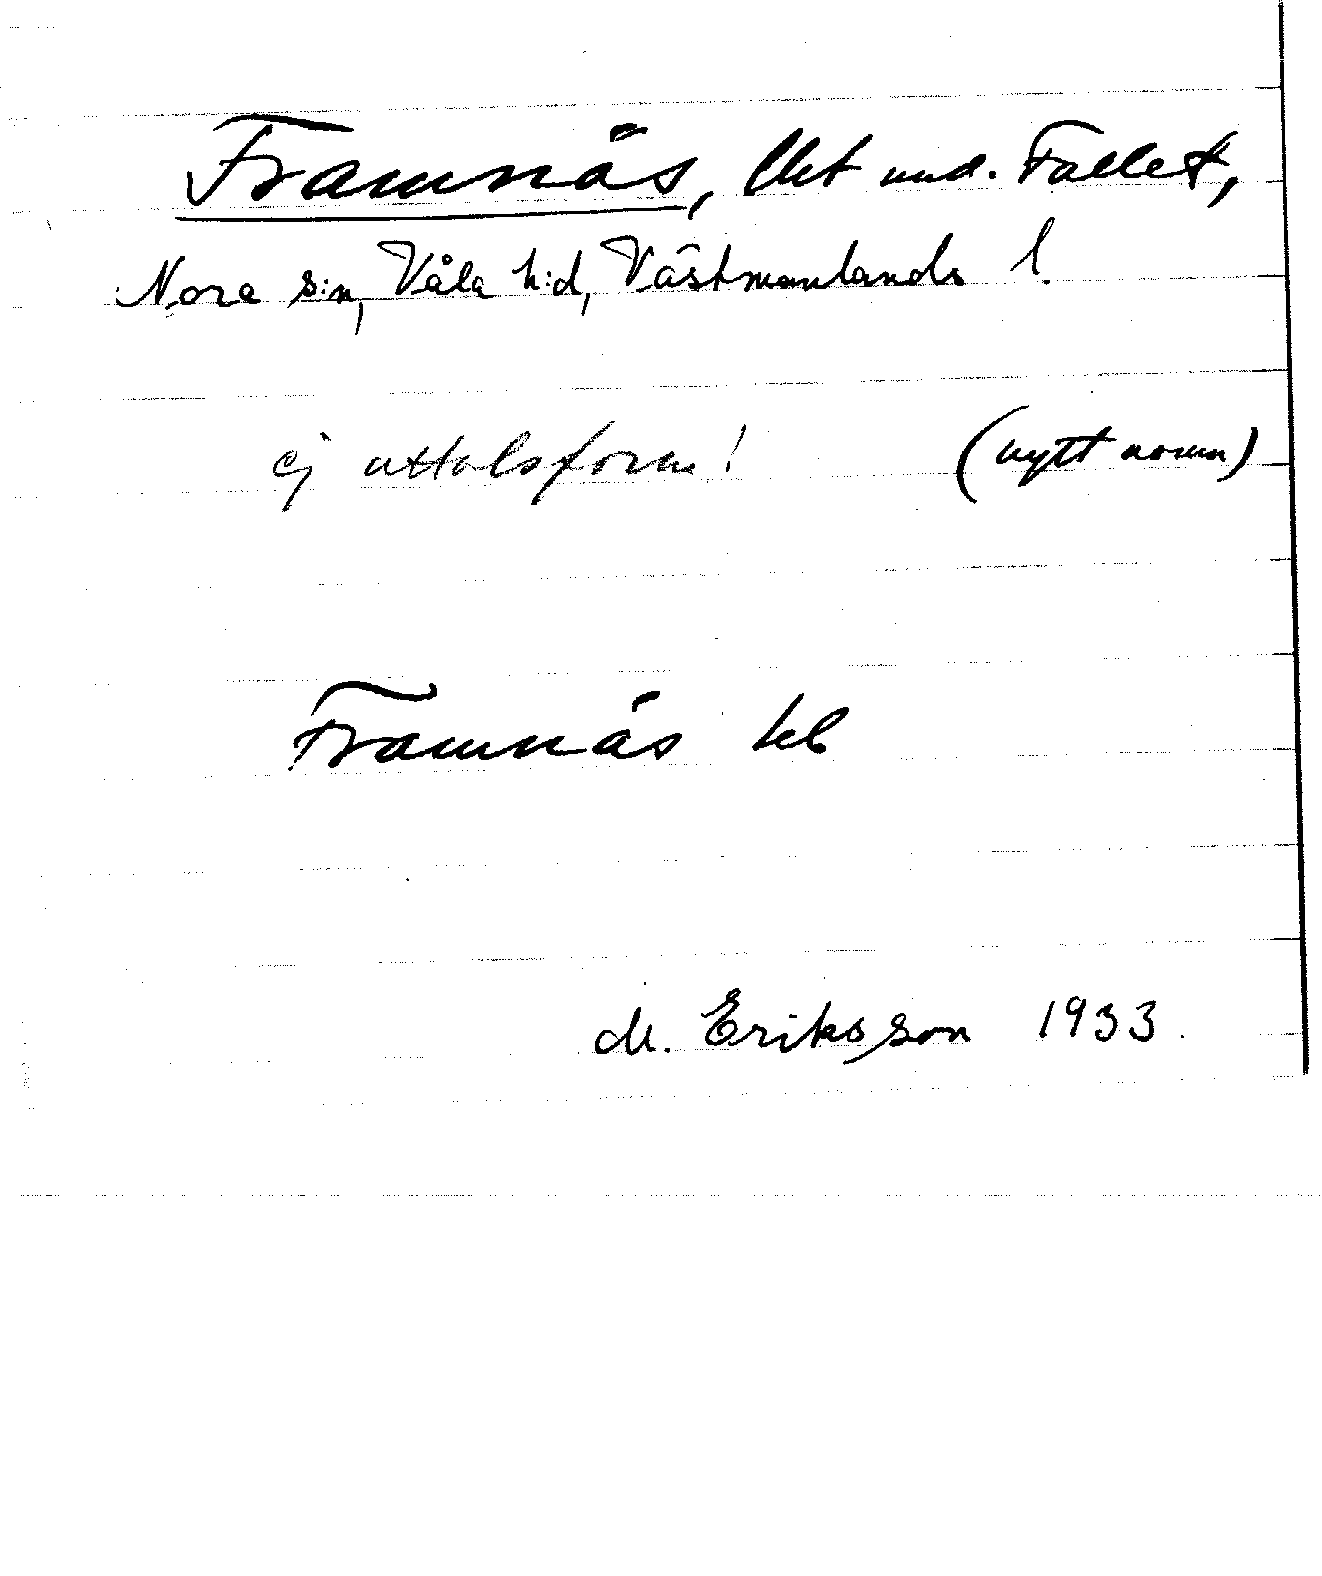 Framnäs, lht und. Fallet,
Nora s:n, Våla h:d, Västmanlands l.
ej uttalsform! (nytt namn)
Framnäs kb
M. Eriksson 1933.